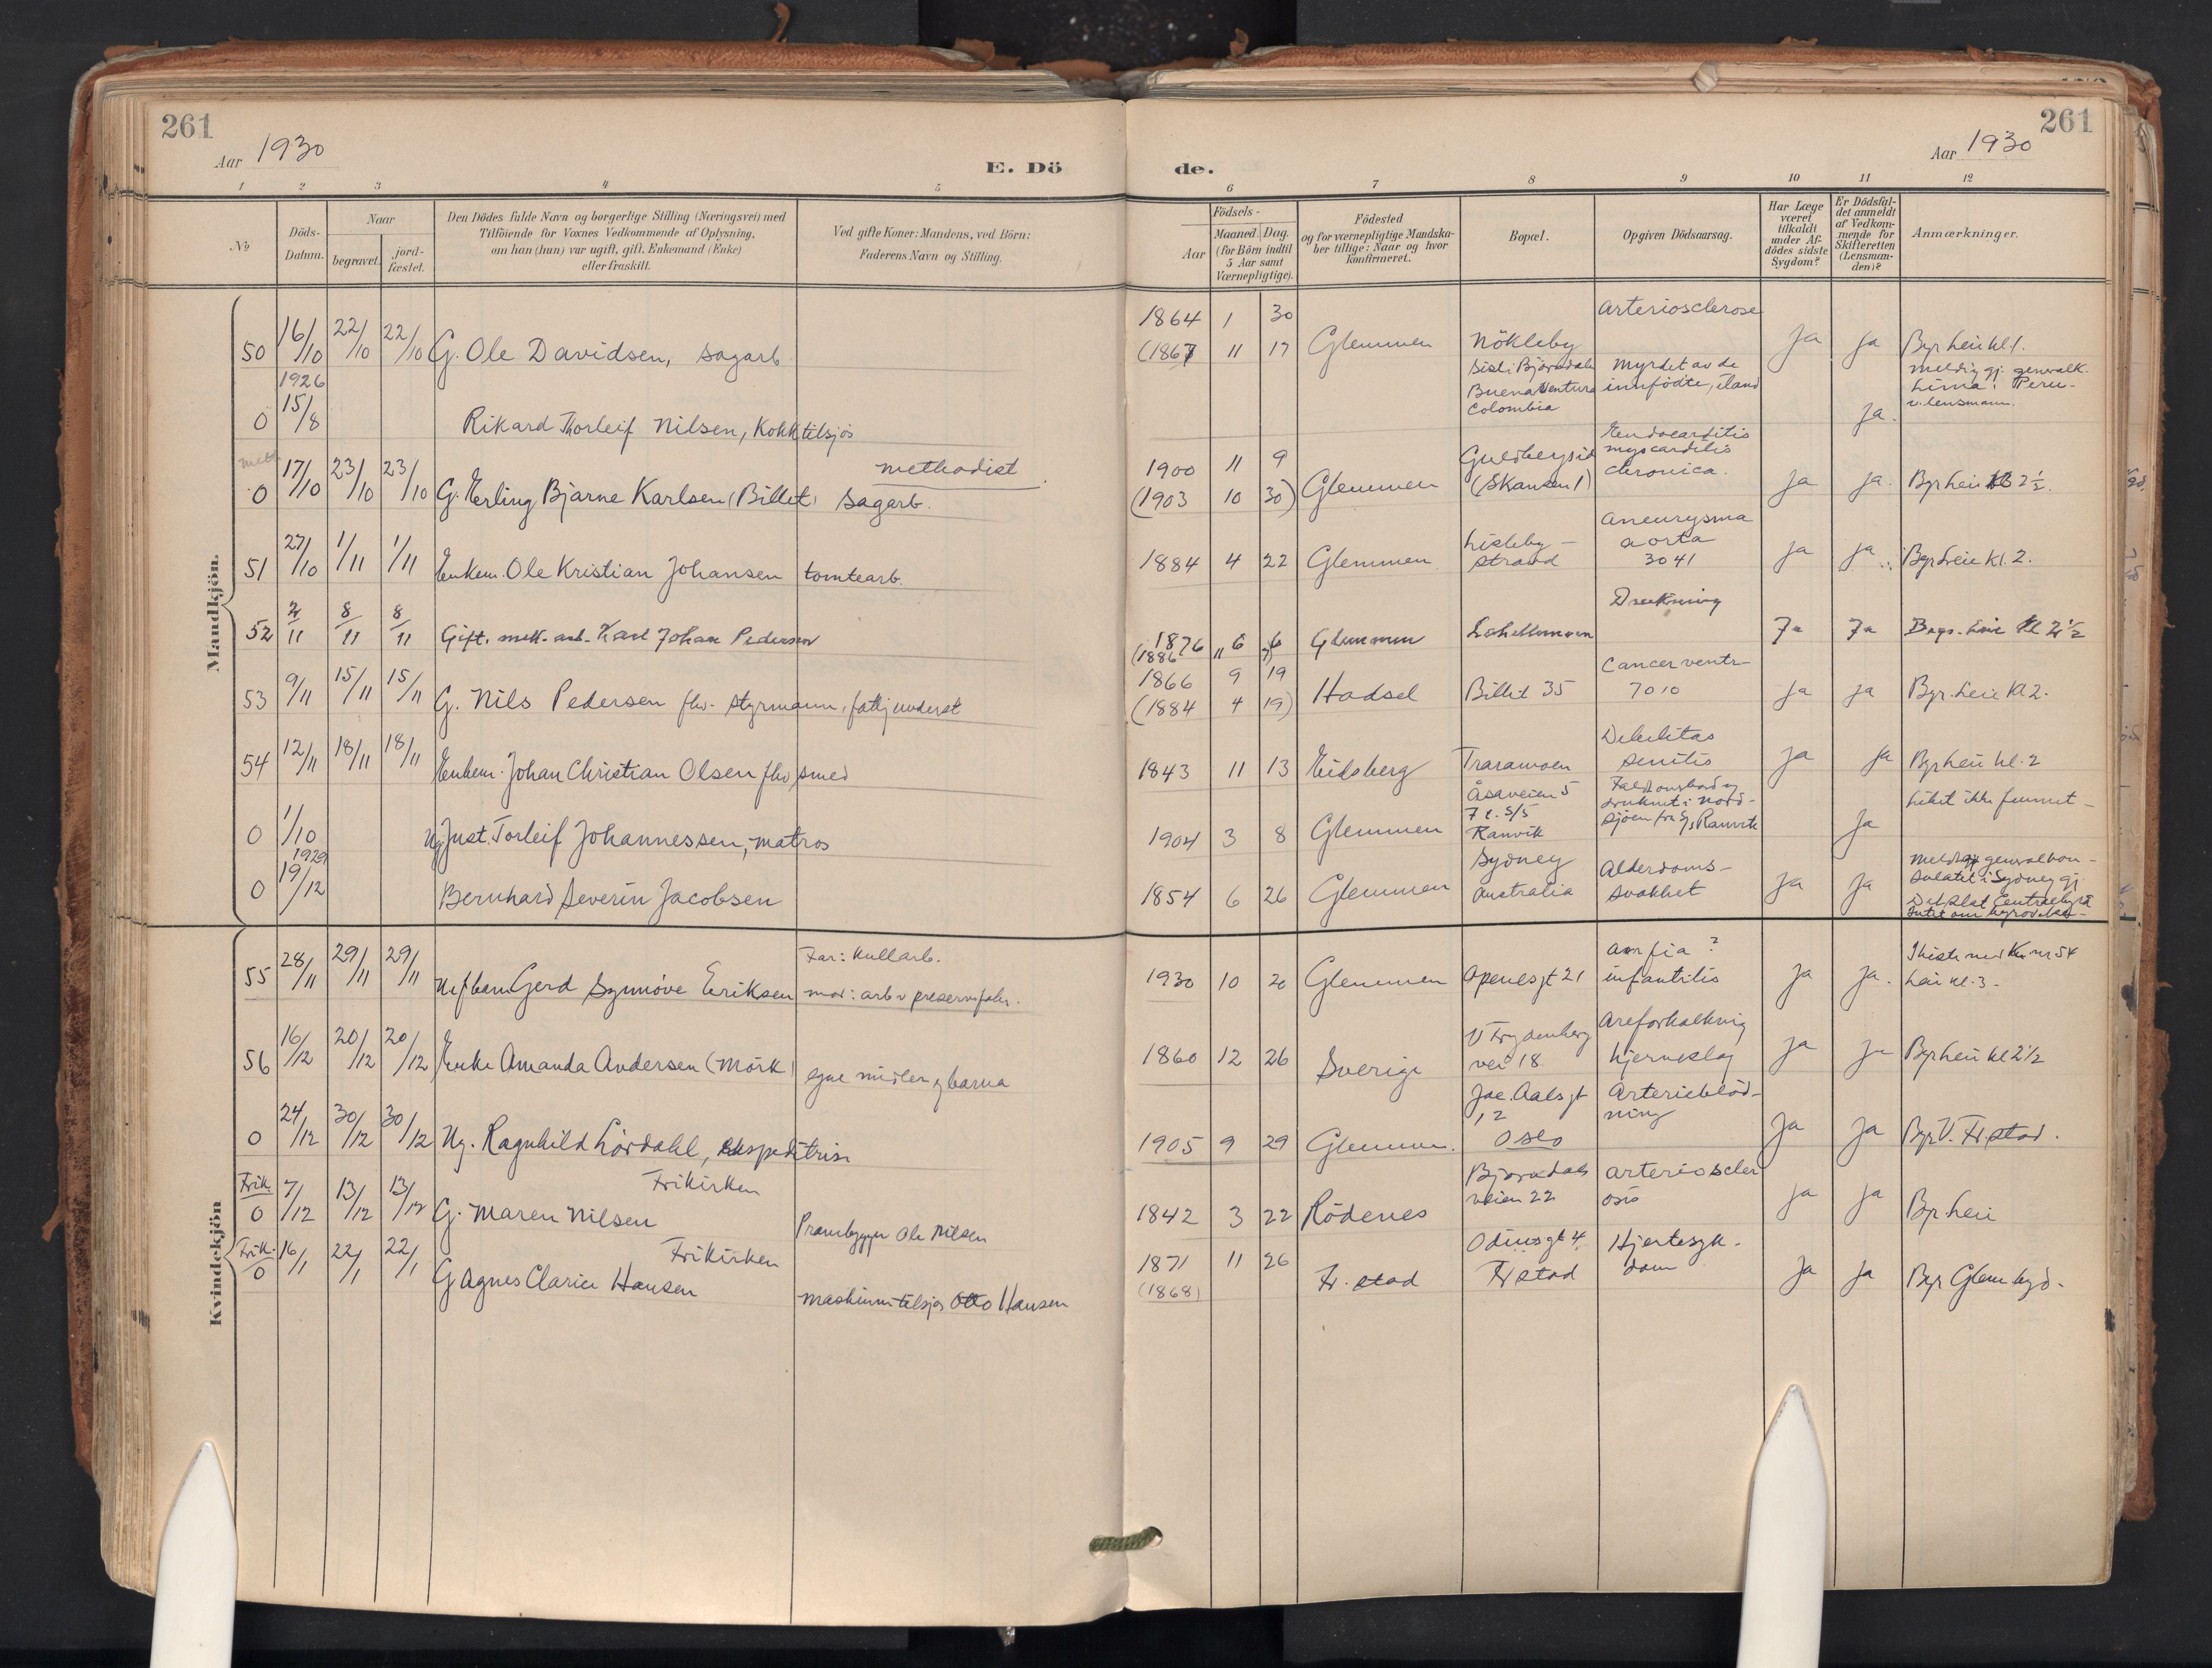 261
Aar 1930
E. Dö
1 2 3 4 5
№
Döds-
Datum.
Naar
begravet.
jord-
fæstet.
Den Dödes fulde Navn og borgerlige Stilling (Næringsvei) med
Tilföiende for Voxnes Vedkommende af Oplysning,
om han (hun) var ugift, gift, Enkemand (Enke)
eller fraskilt.
Ved gifte Koner: Mandens, ved Börn:
Faderens Navn og Stilling.
Mandkjön.
50 16/10 22/10 22/10 G. Ole Davidsen, sagarb.
1926
0 15/8 Rikard Thorleif Nilsen, Kokk tilsjøs
methodist
0 17/10 23/10 23/10 G. Erling Bjarne Karlsen (Billet) sagarb.
51 27/10 1/11 1/11 Enkem. Ole Kristian Johansen tomtearb.
52 2/11 8/11 8/11 Gift. mek. arb. Karl Johan Pedersen
53 9/11 15/11 15/11 G. Nils Pedersen fhv. styrmann, fattigunderst
54 12/11 18/11 18/11 Enkem. Johan Christian Olsen fhv smed
0 1/10 Ug. Just. Torleif Johannessen, matros
1929
0 19/12 Bernhard Severin Jacobsen
Kvindekjön
Far: Kullarb.
55 28/11 29/11 29/11 Gerd Synnöve Eriksen mor: arb v preservefabr.
56 16/12 20/12 20/12 Enke Amanda Andersen (Mörk) egne midler og barna
0 24/12 30/12 30/12 Ug. Ragnhild Lördahl, ekspeditrise
Frik. Frikirken
0 7/12 13/12 13/12 G. Maren Nilsen Prambygger Ole Nilsen
Frik. Frikirken
0 16/1 22/1 22/1 G Agnes Clarice Hansen maskinm tilsjøs Otto Hansen
261
Aar 1930
de.
6 7 8 9 10 11 12
Födsels-
Aar
Maaned. Dag.
(for Börn indtil
5 Aar samt
Værnepligtige).
Födested
og for værnepligtige Mandska-
ber tillige: Naar og hvor
konfirmeret.
Bopæl.
Opgiven Dödsaarsag.
Har Læge
været
tilkaldt
under Af-
dödes sidste
Sygdom?
Er Dödsfal-
det anmeldt
af Vedkom-
mende for
Skifteretten
(Lensman-
den)?
Anmærkninger.
1864 1 30 arteriosclerose
(1867 11 17 Glemmen Nökleby Ja Ja Byr leie kl 1.
Sist: Björndalen
Buenaventura
Colombia
Myrdet av de
innfödte, iland
Ja.
melding gj. generalk.
Lima i Peru -
v. lensmann.
1900 11 9
(1903 10 30) Glemmen
(Skansen 1)
Endocarditis
myocarditis
chronica.
Ja Ja. Byr leie Kl 2½.
1884 4 22 Glemmen
Lisleby-
strand
Aneurysma
aorta
3041
Ja Ja. Byr leie Kl. 2.
1876 6 6 Glemmen Drukning Ja Ja Bygr. Leie Kl 2½
(1886 11 7)
1866 9 19
(1884 4 19) Hadsel Billet 35
Cancer ventr-
7010
Ja Ja Byr. leie Kl 2.
1843 11 13 Eidsberg Traramoen
Debilitas
senilis
Ja Ja Byr leie kl. 2
1904 3 8 Glemmen
Åsaveien 5
7 l. S/S
Ranvik
Falt ombord og
druknet i Nord-
sjöen fra S/S Ranvik
Ja
Liket ikke funnet -
1854 6 26 Glemmen
Sydney
Australia
Alderdoms-
svakhet
Ja Ja
Melding generalkon-
sulatet i Sydney gj
Det Stat. Centralbyrå
1930 10 20 Glemmen Apenesgt 21
infantilis
Ja Ja.
Kiste med Kv nr 54
Leie kl. 3-
1860 12 26 Sverige
V Frydenberg
vei 18
Areforkalkning
hjerneslag
Ja Ja Byr leie kl 2½
1905 9 29 Glemmen.
Jac. Aalsgt
12
Oslo
Arterieblöd-
ning
Ja Ja Byr V. Fr.stad.
1842 3 22 Rödenes
Björndals
veien 22
arterioscler
osis
Ja Ja Byr. leie
1871 11 26
(1868) Fr. stad
Odinsgt 4
Frstad
Hjertesyk-
dom
Ja Ja Byr Glem byd.